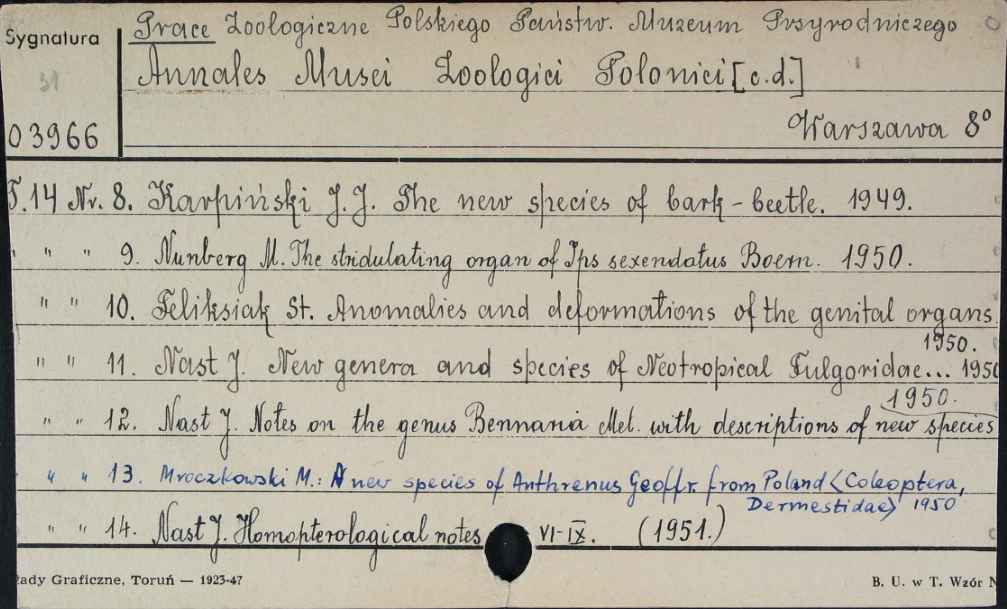 Sygnatura
Prace Zoologiczne Polskiego Państw. Muzeum Przyrodniczego
31
Annales Musei Zoologici Polonici [c.d.]
03966
Warszawa 8°
T.14 Nr. 8. Karpiński J.J. The new species of bark-beetle. 1949.
" " 9. Nunberg M. The stridulating organ of Ips sexendatus Boern. 1950.
" " 10. Feliksiak St. Anomalies and deformations of the genital organs.
1950.
" " 11. Nast J. New genera and species of Neotropical Fulgoridae... 1950
1950.
" " 12. Nast J. Notes on the genus Bennaria Mel. with descriptions of new species
" " 13. Mroczkowski M.: A new species of Anthrenus Geoffr. from Poland <Coleoptera,
Dermestidae> 1950
" " 14. Nast J. Homopterological notes VI-IX. (1951.)
łady Graficzne, Toruń — 1923-47
B. U. w T. Wzór N